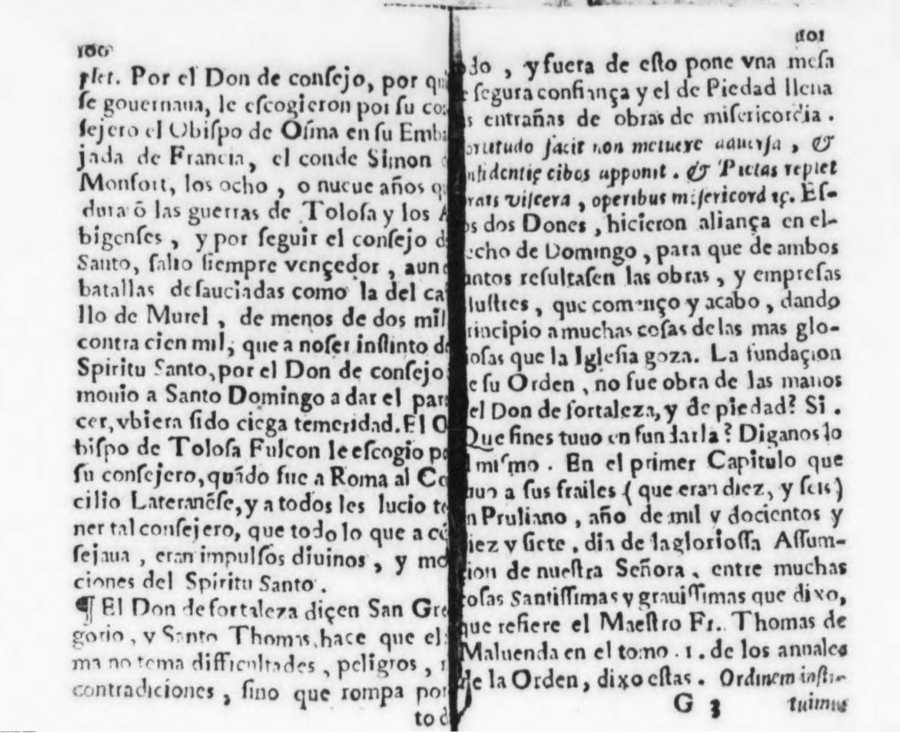 100
plet. Por el Don de consejo, por
se gouernaua, le escogieron por su
sejero el Obispo de Osma en su
jada de Francia, el conde Simon
Monfort, los ocho, o nueue años
dura ō las guerras de Tolosa y los
bigenses, y por seguir el consejo
Santo, salio siempre vençedor,
batallas desauciadas como la del
llo de Murel, de menos de dos mil
contra cien mil, que a noser instinto
Spiritu Santo, por el Don de consejo
mouio a Santo Domingo a dar el
cer, vbiera sido ciega temeridad. El
bispo de Tolosa Fulcon le escogio
su consejero, quādo fue a Roma al
cilio Lateranēse, y a todos les lucio
ner tal consejero, que todo lo que a
sejaua, eran impulsos diuinos, y
ciones del Spiritu Santo.
¶ El Don de fortaleza diçen San
gorio, y Santo Thomas, hace que el
ma no tema difficultades, peligros,
contradiciones, sino que rompa por
to
101
do, y fuera de esto pone vna mesa
segura confiança y el de Piedad llena
entrañas de obras de misericordia.
facit non metuere aduersa, &
cibos apponit. & Pietas replet
viscera, operibus misericordię. Es-
os dos Dones, hicieron aliança en el-
echo de Domingo, para que de ambos
resultasen las obras, y empresas
lustres, que començo y acabo, dando
rincipio a muchas cosas de las mas glo-
iosas que la Iglesia goza. La fundaçion
e su Orden, no fue obra de las manos
el Don de fortaleza, y de piedad? Si.
Que fines tuuo en fundarla? Diganos lo
mismo. En el primer Capitulo que
a sus frailes (que eran diez, y seis)
n Pruliano, año de mil y docientos y
iez y siete, dia de la gloriossa Assum-
ion de nuestra Señora, entre muchas
cosas Santissimas y grauissimas que dixo,
que refiere el Maestro Fr. Thomas de
Maluenda en el tomo .1. de los annales
de la Orden, dixo estas. Ordinem insti-
G 3 tuimus